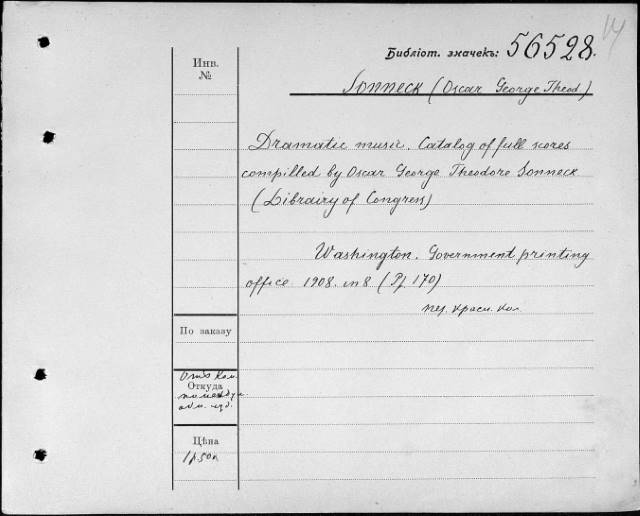 14
Библіот. значекъ: 56528.
Инв.
№
Sonneck (Oscar George Theod.)
Dramatic music. Catalog of full scores
compilled by Oscar George Theodore Sonneck
(Librairy of Congress)
Washington. Government printing
office. 1908. in 8 (Pp 170)
пер. красн. кол.
По заказу
Откуда
Цѣна
1р.50к